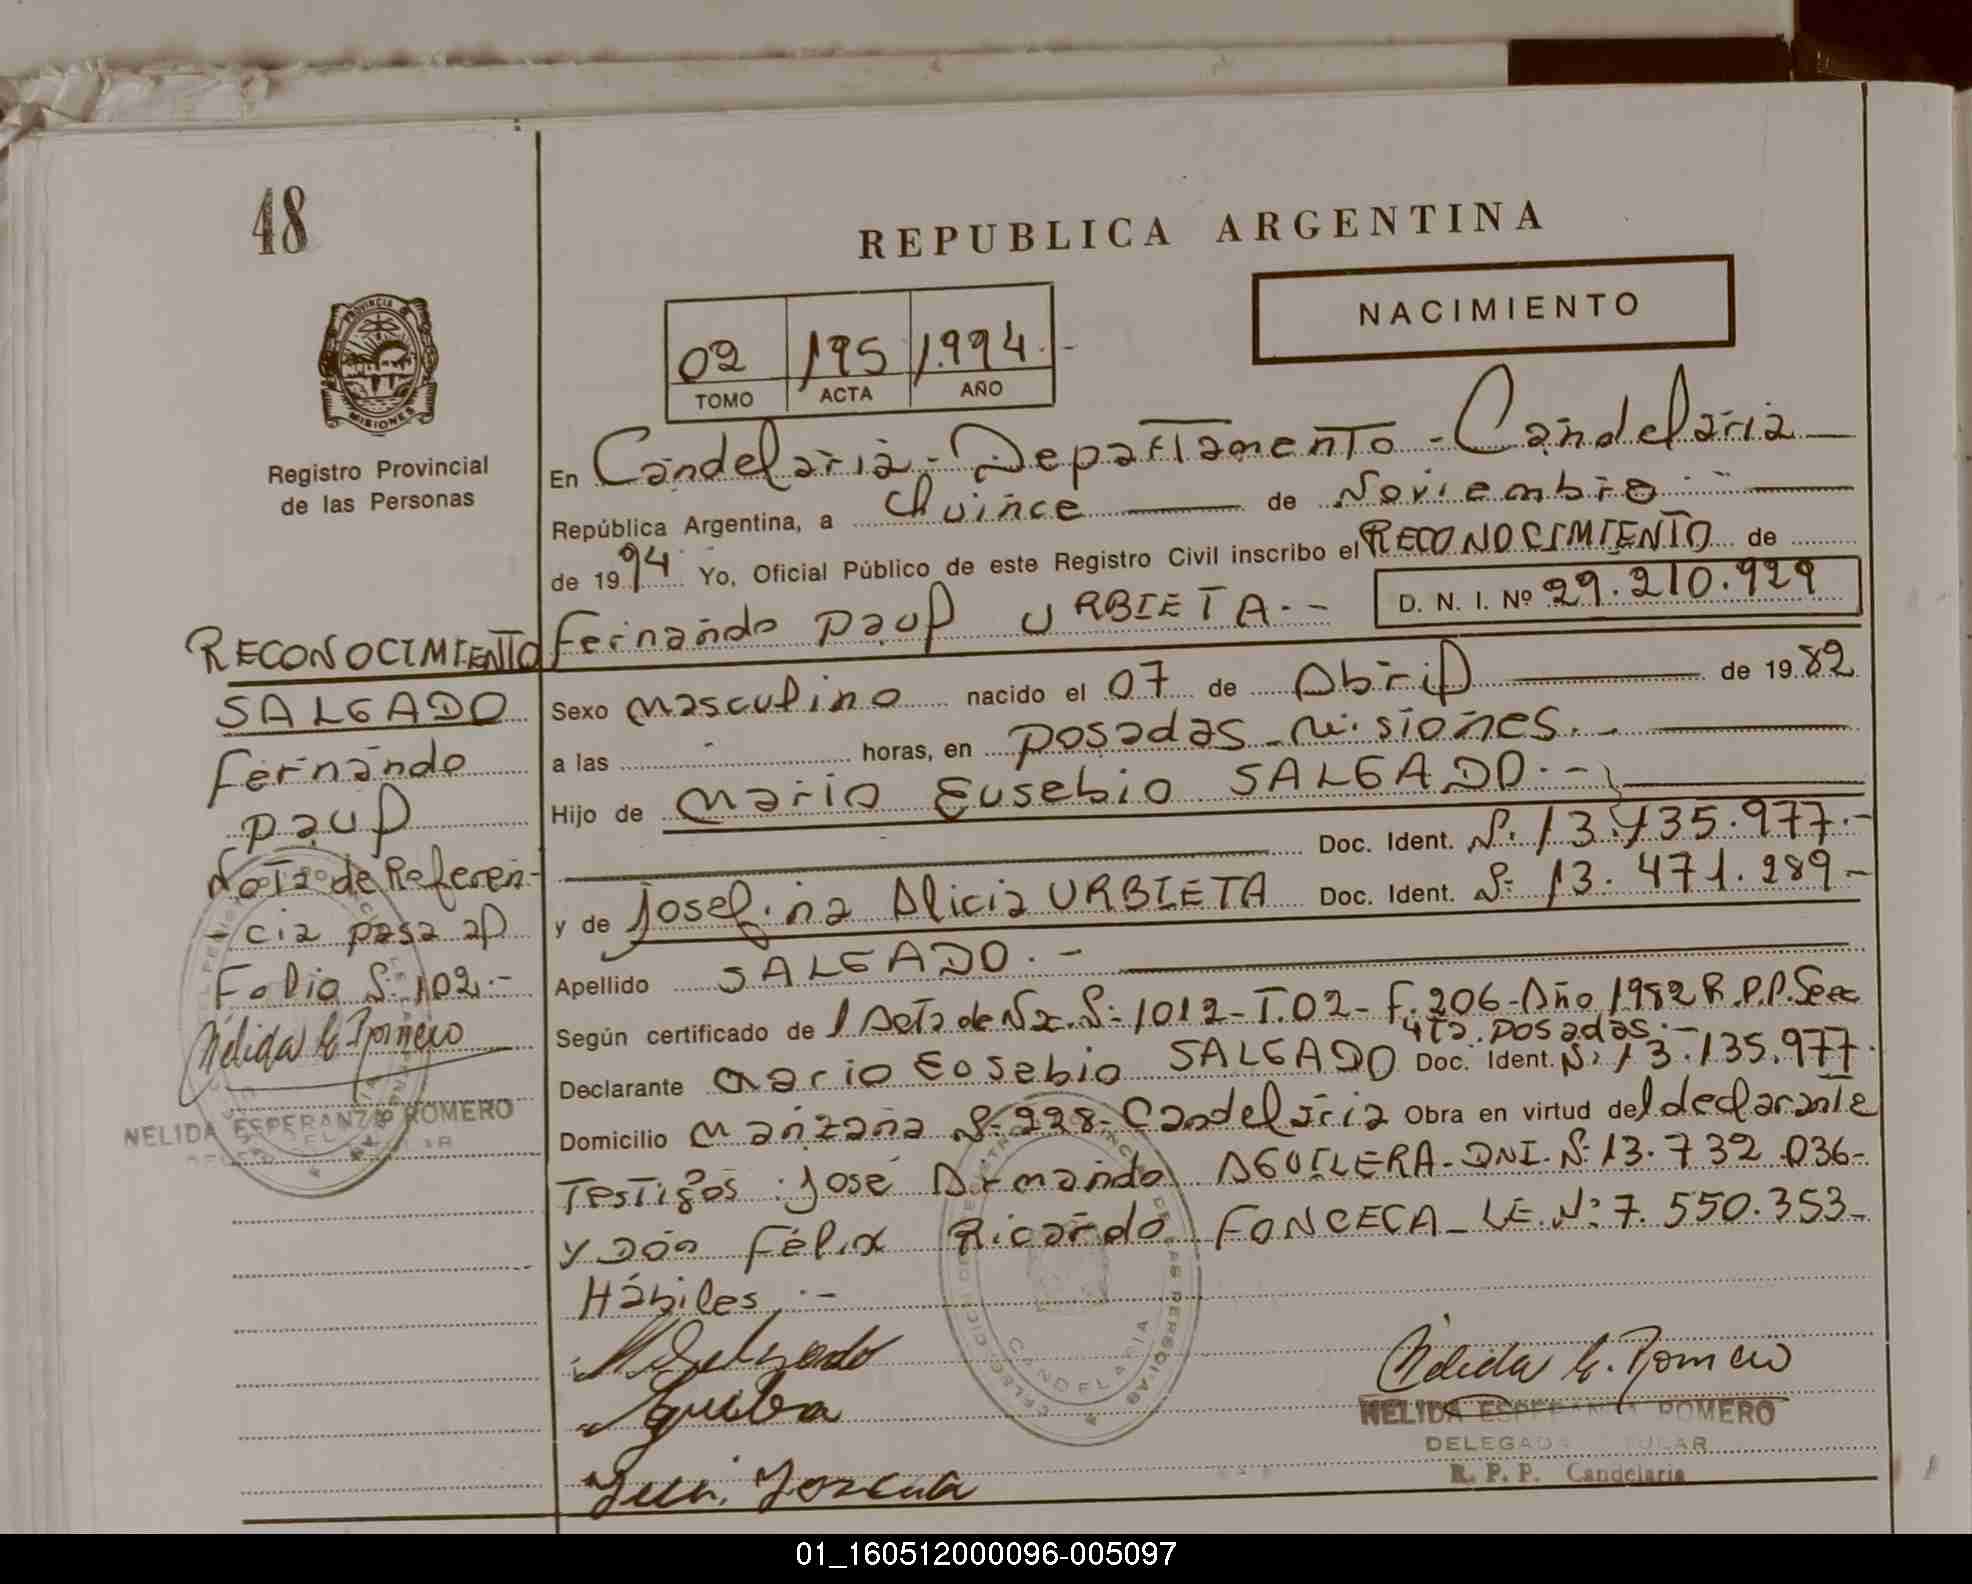 48
REPUBLICA ARGENTINA
NACIMIENTO
02 195 1.994.-
TOMO ACTA AÑO
PROVINCIA
MISIONES
Registro Provincial
de las Personas
En Candelaria - Departamento - Candelaria
República Argentina, a Quince de Noviembre
de 1994. Yo, Oficial Público de este Registro Civil inscribo el RECONOCIMIENTO de
D. N. I. Nº 29.210.929
Fernando Paul URBIETA.-
Sexo masculino nacido el 07 de Abril de 1982
a las - horas, en Posadas - Misiones.-
Hijo de Mario Eusebio SALGADO.-
Doc. Ident. Nº 13.135.977.-
y de Josefina Alicia URBIETA Doc. Ident. Nº 13.471.289-
Apellido SALGADO.-
Según certificado de l Acta de Nac. Nº 1012-T.02-F.206-Año 1982 R.P.P. Secc
4ta. Posadas.-
Declarante Mario Eosebio SALGADO Doc. Ident. Nº 13.135.977.
Domicilio Manzana Nº 228-Candelaria Obra en virtud del declarante
Testigos: José Armando AGUILERA-DNI. Nº 13.732.036-
y Don Félix Ricardo FONCECA-LE. Nº 7.550.353-
Hábiles.-
RECONOCIMIENTO
SALGADO
Fernando
Paul
Nota de Referen-
-cia pasa al
Folio Nº 102.-
Nélida E. Romero
NELIDA ESPERANZA ROMERO
M Salgado
Nélida E. Romero
NELIDA ESPERANZA ROMERO
DELEGADA TITULAR
R. P. P. Candelaria
CANDELARIA
01_160512000096-005097